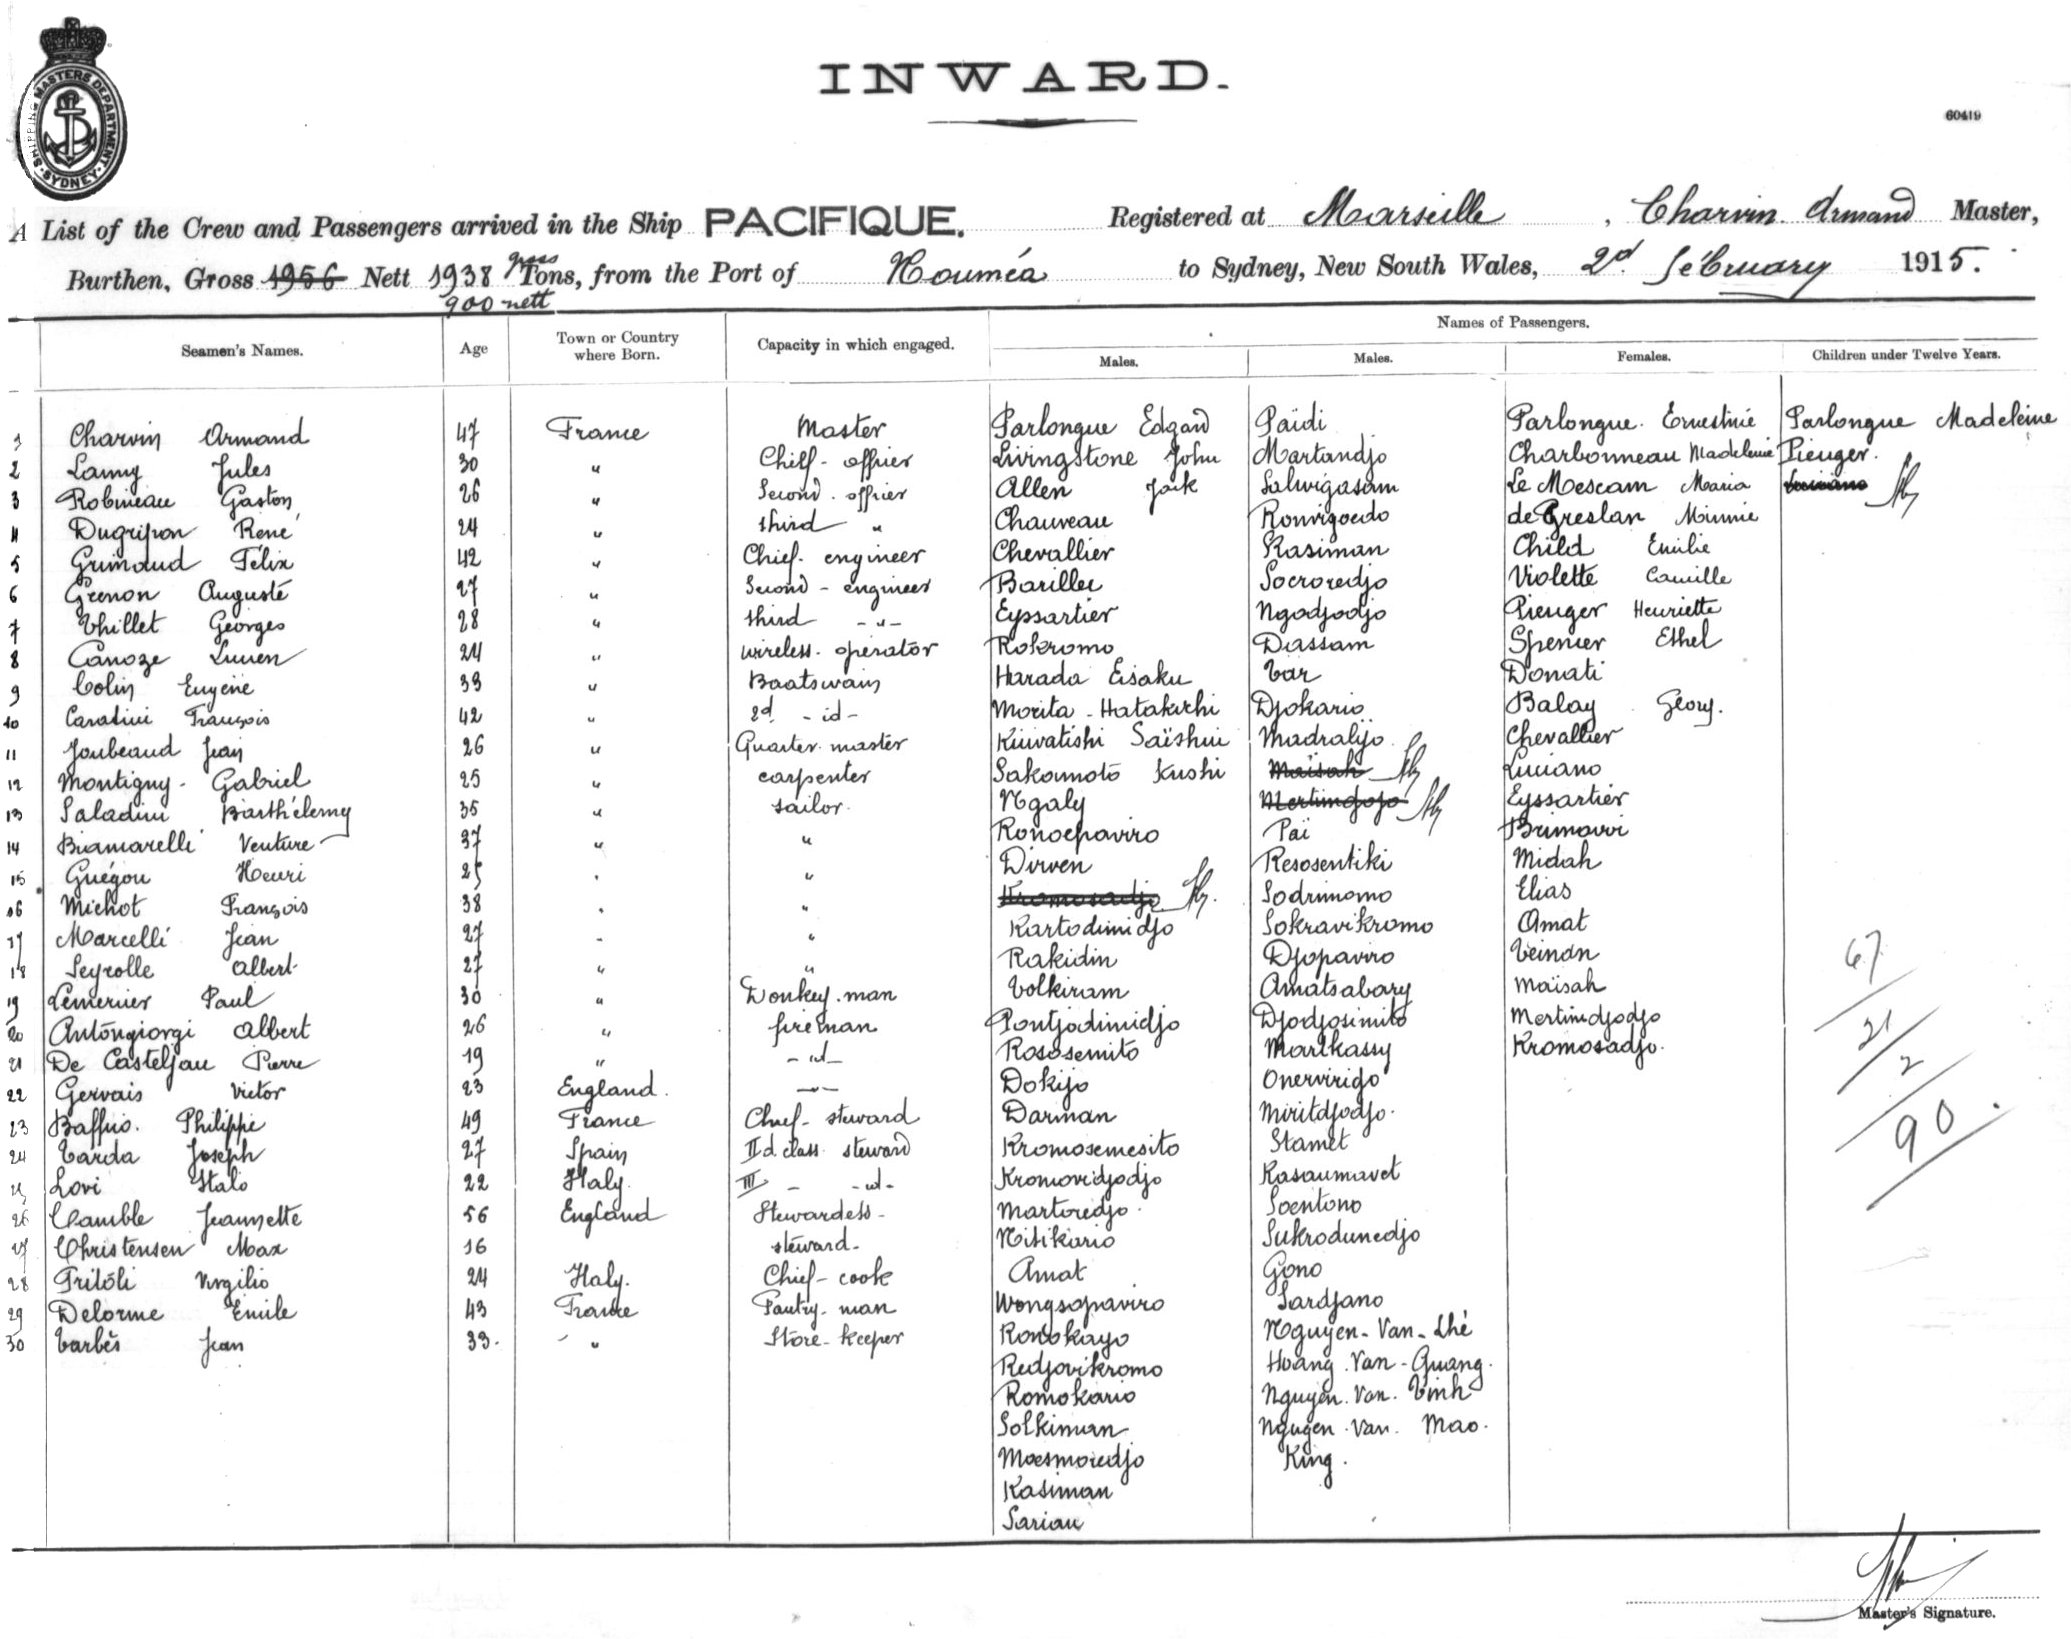 SHIPPING MASTERS DEPARTMENT. SYDNEY.
INWARD.
60419
A List of the Crew and Passengers arrived in the Ship PACIFIQUE. Registered at Marseille, Charvin Armand Master,
Burthen, Gross 1956 Nett 1938 gross Tons, from the Port of Nouméa to Sydney, New South Wales, 2d February 1915.
900 nett
Names of Passengers.
Seamen's Names. Age Town or Country where Born. Capacity in which engaged. Males. Males. Females. Children under Twelve Years.
1 Charvin Armand 47 France Master Parlongue Edgard Païdi Parlongue Ernestine Parlongue Madeleine
2 Lamy Jules 30 " Chief officer Livingstone John Martandjo Charbonneau Madeleine Pieuger.
3 Robineau Gaston 26 " Second officer Allen Jack Salwigasam Le Mescam Maria Luciano
4 Dugripon René 24 " third " Chauveau Ronvigoedo de Greslan Minnie
5 Grimaud Félix 42 " Chief engineer Chevallier Kasiman Child Emilie
6 Grenon Auguste 27 " Second - engineer Barillec Socroredjo Violette Camille
7 Thillet Georges 28 " third -"- Eyssartier Ngodjodjo Pieuger Henriette
8 Canoze Lucien 24 " wireless operator Rokromo Dassam Spencer Ethel
9 Colin Eugène 39 " Boatswain Harada Eisaku Tar Donati
10 Caratini François 42 " 2d -id- Morita - Hatakichi Djokario Balay Georg.
11 Joubeaud Jean 26 " Quarter master Kiiwatishi Saïshui Madralijo Chevallier
12 Montigny - Gabriel 25 " carpenter Sakamoto Kushi Maïsah Luciano
13 Saladini Barthélemy 35 " sailor Ngaly Mertimdjojo Eyssartier
14 Biamarelli Venture 37 " " Ronoepaviro Paï Brimawi
15 Guégou Henri 25 " " Dirven Resosentiki Midah
16 Michot François 38 " " Kromosadjo Sodrimomo Elias
17 Marcelli Jean 27 " " Kartodimidjo Sokravikromo Amat
18 Seyrolle Albert 27 " " Rakidin Djopaviro Veinan
19 Lemerier Paul 30 " Donkey man Volkiram Amatsabary Maïsah
20 Antongiorgi Albert 26 " fireman Pontjodimidjo Djodjosimito Mertimdjodjo
21 De Casteljau Pierre 19 " -id- Rososemito Marlkassy Kromosadjo.
22 Gervais Victor 23 England. -"- Dokijo Onervirigo
23 Baffico. Philippe 49 France Chief steward Darman Miritdjodjo.
24 Tarda Joseph 27 Spain IId class steward Kromosemesito Stamet
25 Lovi Italo 22 Italy. III - -id- Kromovidjodjo Kasaumavet
26 Camble Jeannette 56 England Stewardess - Martoredjo Soentono
27 Christensen Max 16 steward - Nitikario Sukrodunedjo
28 Tritoli Virgilio 24 Italy. Chief - cook Amat Gono
29 Delorme Emile 43 France Pantry - man Wongsopaviro Sardjano
30 Tarbès Jean 33 " Store - keeper Ronokayo Nguyen - Van - Lhé
Redjovikromo Hoang Van - Quang.
Romokario Nguyen. Van. Vinh
Solkiman Nguyen. Van. Mao.
Moesmoredjo King.
Kasiman
Sariau
67
21
2
90.
Master's Signature.